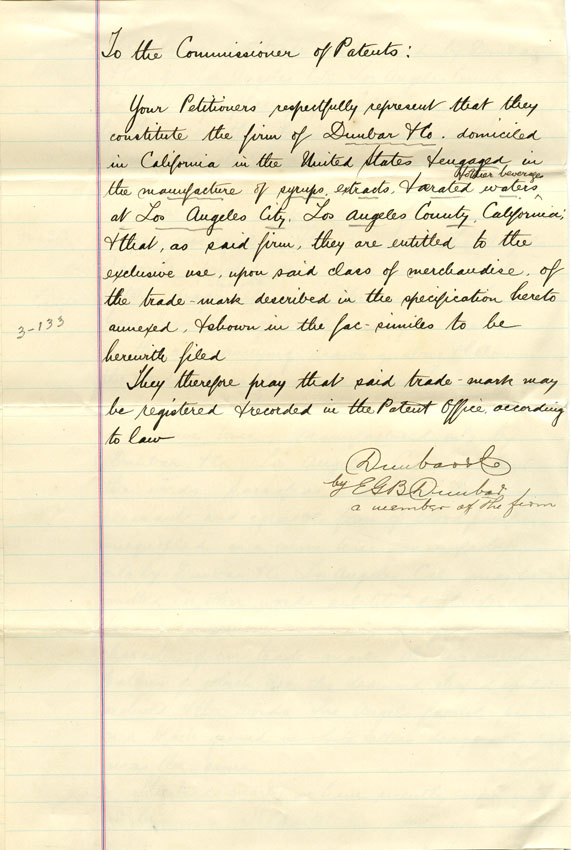 To the Commissioner of Patents:
Your Petitioners respectfully represent that they
constitute the firm of Dunbar & Co. domiciled
in California in the United States & engaged in
the manufacture of syrups, extracts, & ærated waters & other beverages
at Los Angeles City, Los Angeles County, California;
& that, as said firm, they are entitled to the
exclusive use, upon said class of merchandise, of
the trade-mark described in the specification hereto
annexed, & shown in the fac-similes to be
3-133
herewith filed
They therefore pray that said trade-mark may
be registered & recorded in the Patent Office, according
to law
Dunbar & Co
by E G B Dunbar
a member of the firm